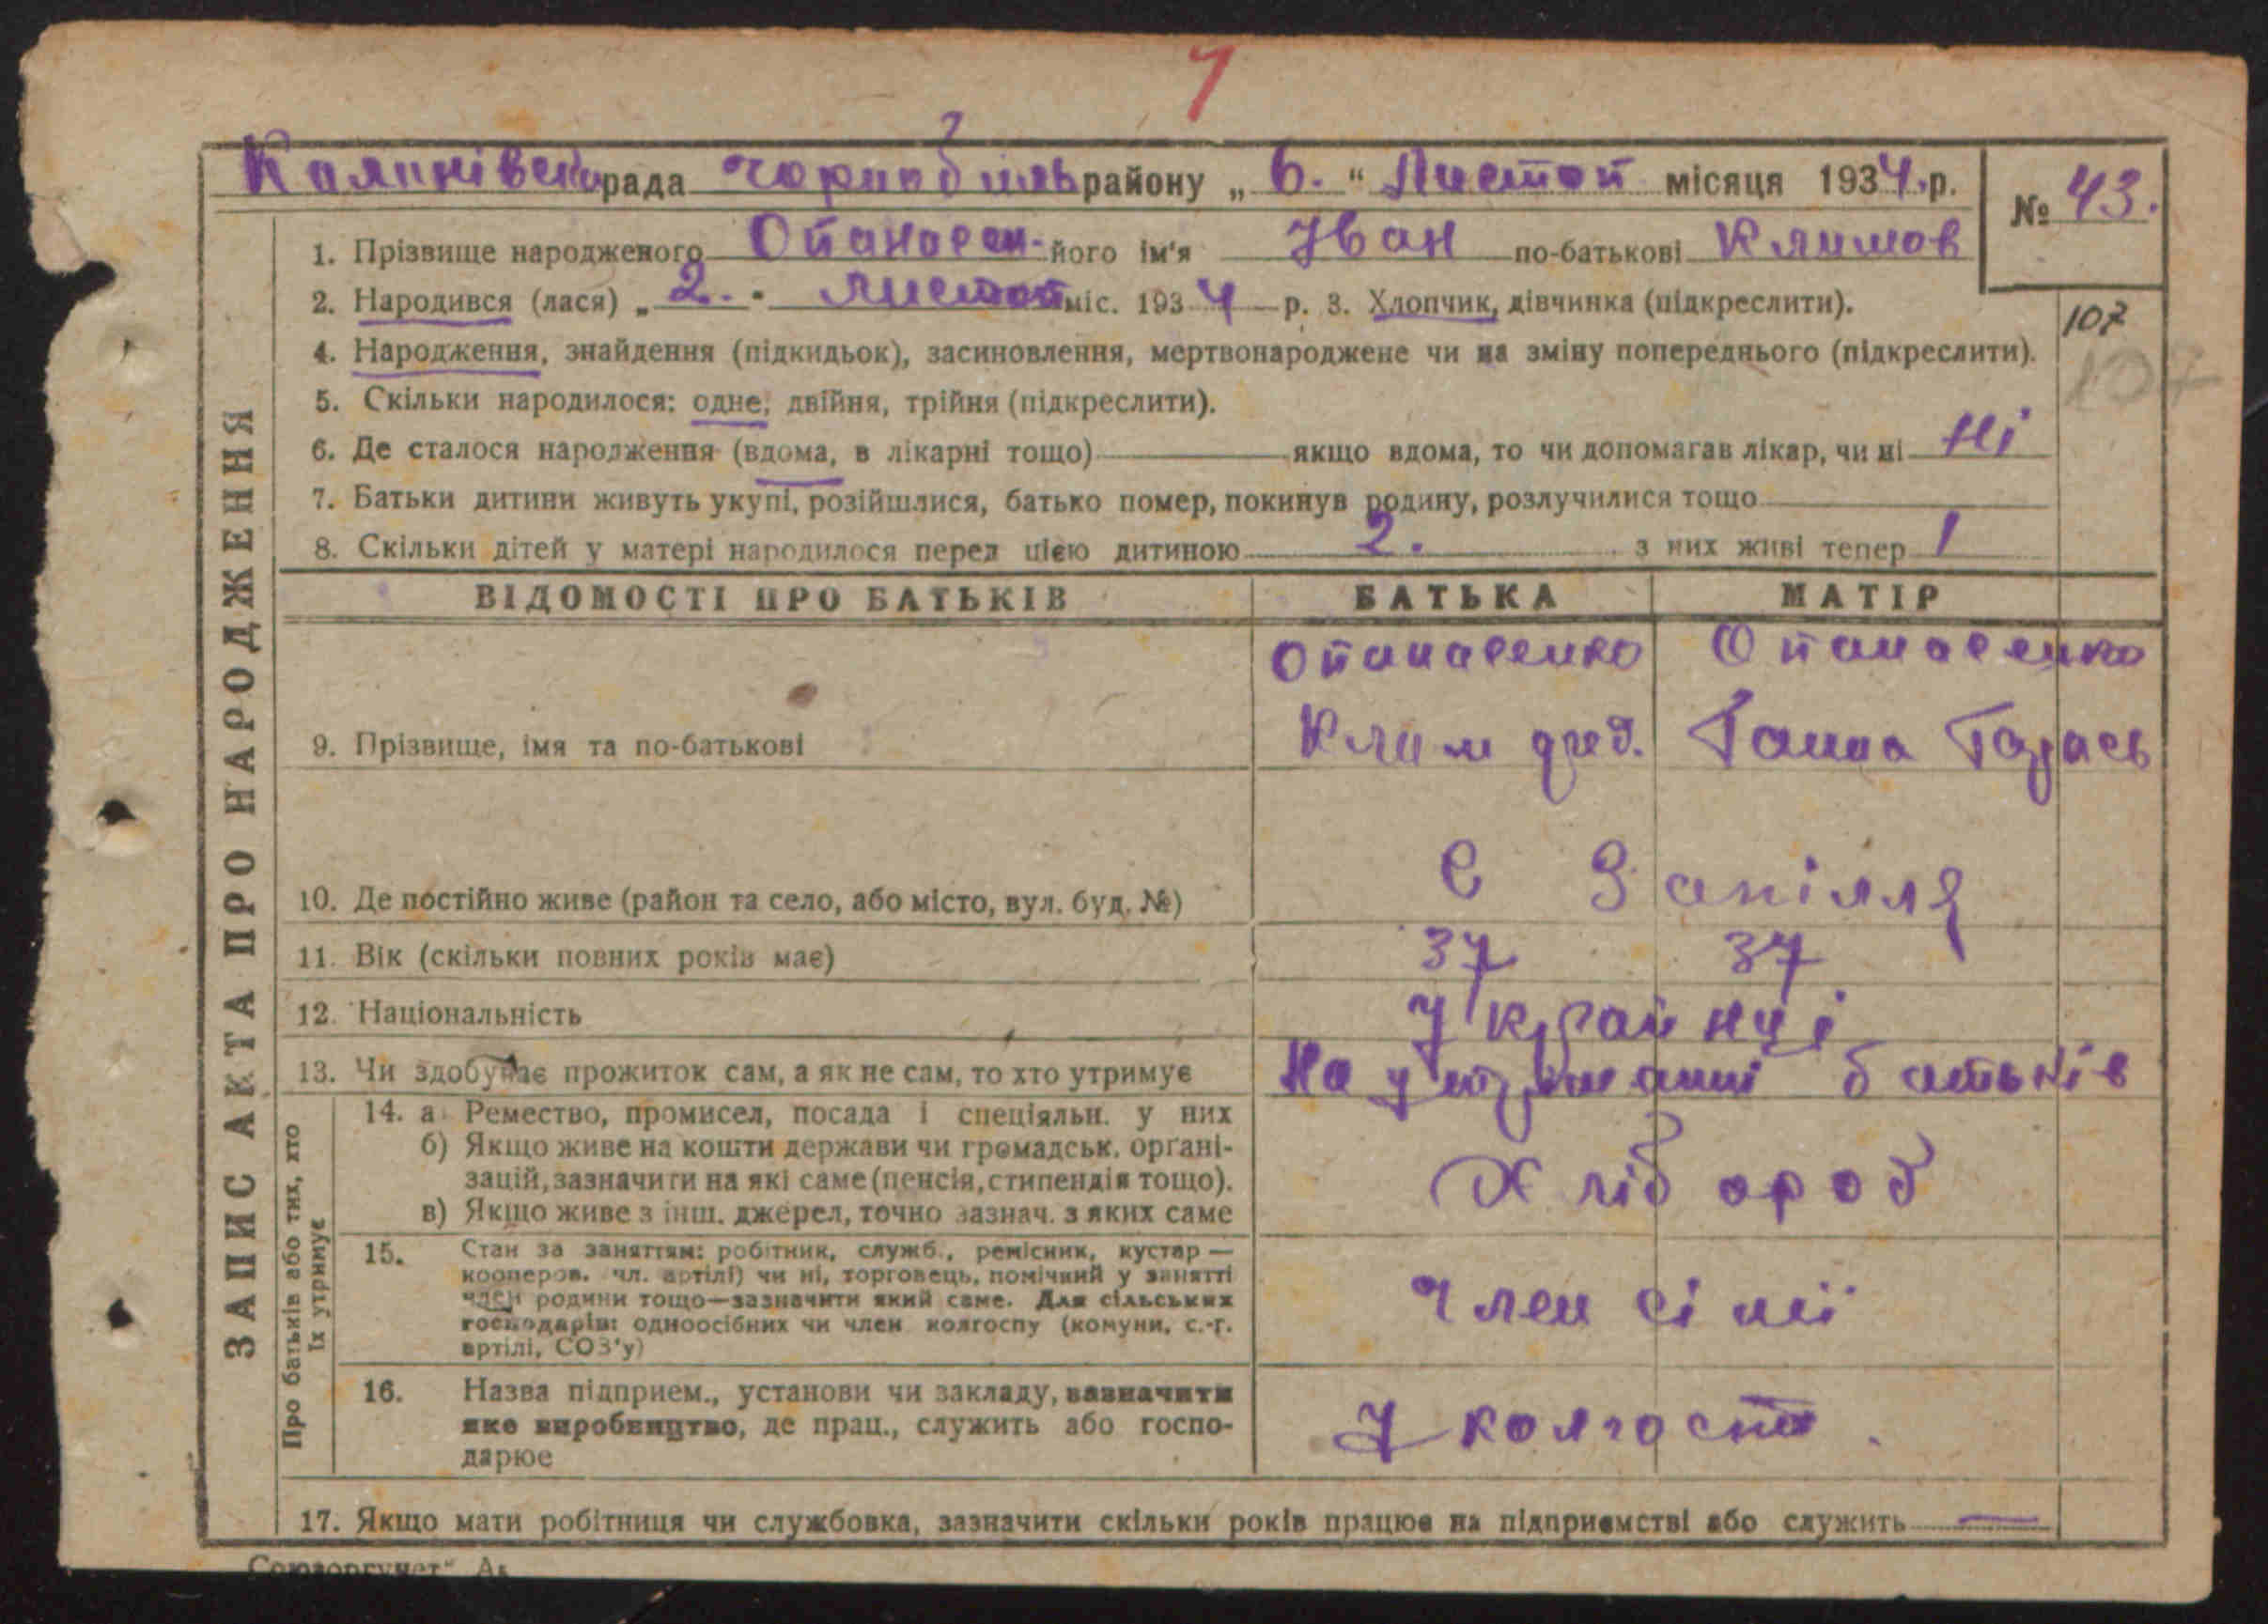 7
Калинівська рада Чорнобиль району „ 6. “ Листоп місяця 1934.р.
№ 43.
1. Прізвище народженого Опанасен. його ім'я Іван по-батькові Климов
2. Народився (лася) „ 2. " листоп міс. 1934 р. 3. Хлопчик, дівчинка (підкреслити).
107
4. Народження, знайдення (підкидьок), засиновлення, мертвонароджене чи на зміну попереднього (підкреслити).
107
5. Скільки народилося: одне, двійня, трійня (підкреслити).
6. Де сталося народження (вдома, в лікарні тощо) якщо вдома, то чи допомагав лікар, чи ні Ні
7. Батьки дитини живуть укупі, розійшлися, батько помер, покинув родину, розлучилися тощо
8. Скільки дітей у матері народилося перед цією дитиною 2. з них живі тепер 1
ЗАПИС АКТА ПРО НАРОДЖЕННЯ
ВІДОМОСТІ ПРО БАТЬКІВ БАТЬКА МАТІР
Опанасенко Опанасенко
9. Прізвище, імя та по-батькові Клим Ганна Тарась
10. Де постійно живе (район та село, або місто, вул. буд. №) С Запілля
11. Вік (скільки повних років має) 37 37
12. Національність Українці
13. Чи здобуває прожиток сам, а як не сам, то хто утримує На утриманні батьків
Про батьків або тих, хто їх утримує
14. а Ремество, промисел, посада і спеціяльн. у них
б) Якщо живе на кошти держави чи громадськ. орґані-
зацій, зазначити на які саме (пенсія, стипендія тощо).
в) Якщо живе з інш. джерел, точно зазнач. з яких саме
Хлібороб
15. Стан за заняттям: робітник, служб., ремісник, кустар —
кооперов. чл. артілі) чи ні, торговець, помічний у занятті
член родини тощо—зазначити який саме. Для сільських
господарів: одноосібних чи член колгоспу (комуни, с.-г.
артілі, СОЗ'у)
Член сімї
16. Назва підприєм., установи чи закладу, зазначити
яке виробництво, де прац., служить або госпо-
дарює
У колгосп.
17. Якщо мати робітниця чи службовка, зазначити скільки років працює на підприємстві або служить —